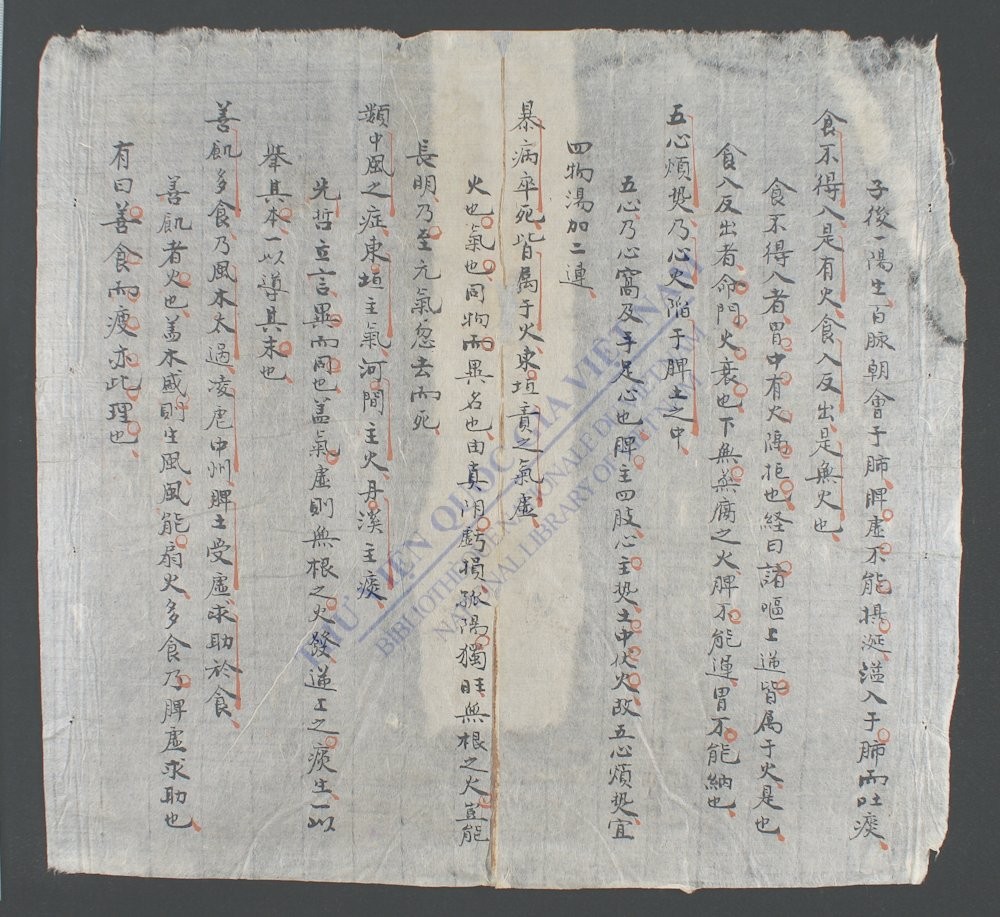 子後一陽生百脉朝會于肺脾虛不能摂涎溢入于肺而吐痰
食不得入是有火食入反出是無火也
食不得入者胃中有火隔拒也経曰諸嘔上逆皆属于火是也
食入反出者命門火衰也下無蒸腐之火脾不能運胃不能納也
五心煩熱乃心火陷于脾土之中
五心乃心窩及手足心也脾主四肢心主熱土中伏火故五心煩熱宜
四物湯加二連
暴病卒死皆属于火東垣責之氣虛
火也氣也同物而異名也由真阴虧損孤陽獨旺無根之火豈能
長明乃至元氣忽去而死
類中風之症東垣主氣河間主火丹溪主痰
先哲立言異而同也盖氣虛則無根之火發逆上之痰生一以
舉其本一以導其末也
善飢多食乃風木太過凌虐中州脾土受虛求助於食
善飢者火也盖木盛則生風風能扇火多食乃脾虛求助也
有曰善食而瘦亦此理也
THƯ VIỆN QUỐC GIA VIỆT NAM
BIBLIOTHÈQUE NATIONALE DU VIETNAM
NATIONAL LIBRARY OF VIETNAM